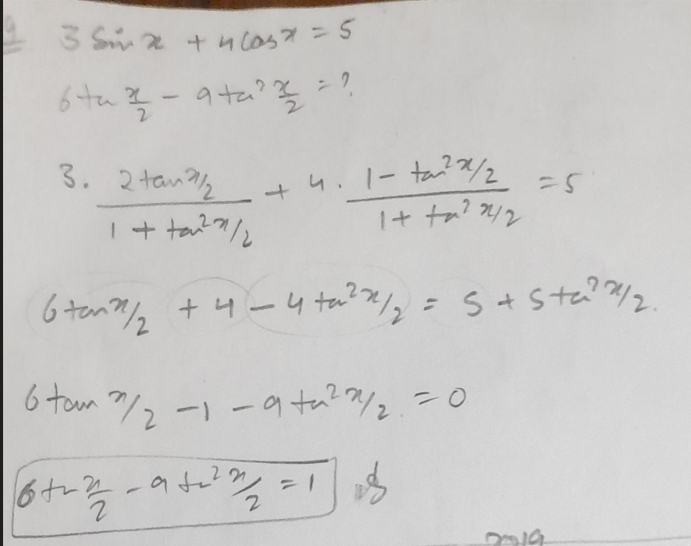 9 3 Sin x + 4 Cos x = 5
6 ta x/2 - 9 ta² x/2 = ?
3. 2 tan x/2 / 1 + tan² x/2 + 4. 1 - tan² x/2 / 1 + ta² x/2 = 5
6 tan x/2 + 4 - 4 ta² x/2 = 5 + 5 ta² x/2.
6 tan x/2 - 1 - 9 ta² x/2 = 0
6 ta x/2 - 9 ta² x/2 = 1
2019